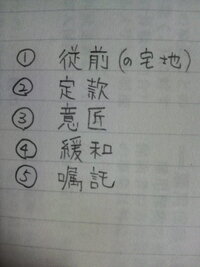 ① 従前(の宅地)
② 定款
③ 意匠
④ 緩和
⑤ 嘱託